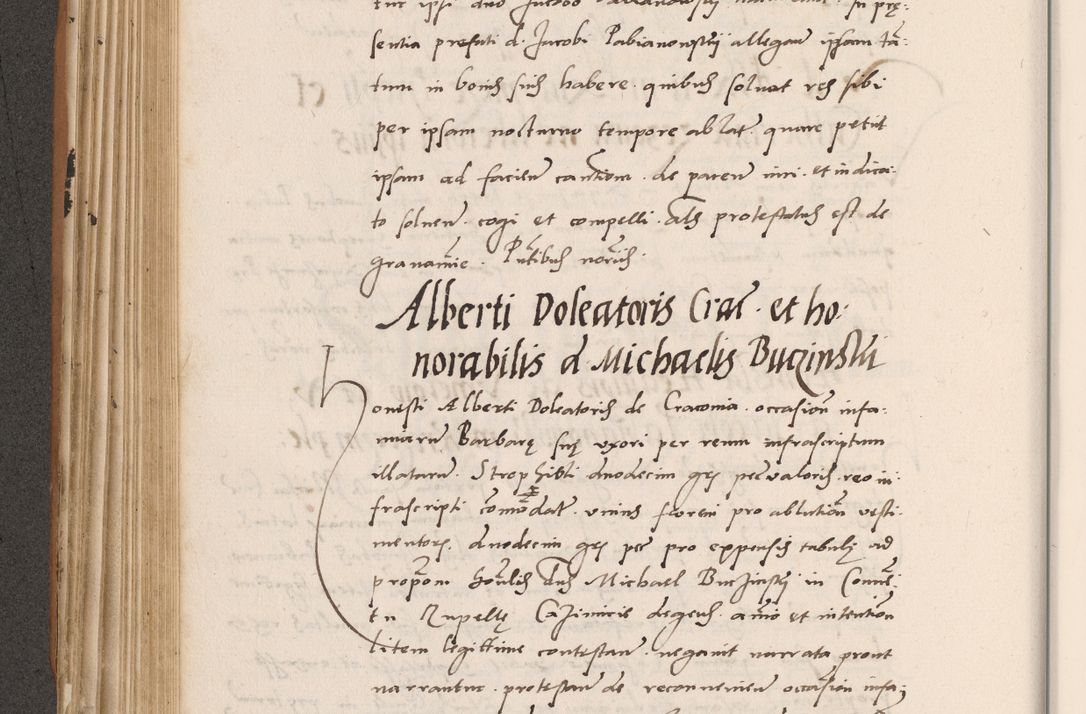 sentia prefati d. Jacobi Pabianowstij allegan ipsam ta:
tum in bonis suis habere. quibus soluat res sibi
per ipsam nocturno tempore ablat. quare petiit
ipsam ad faciem caution. de paren iuri. et indica-
to soluen. cogi et compelli. Als protestatus est de
grauamie. Pntibus notriis.
Alberti Doleatoris Crac. et ho:
norabilis d Michaelis Buczinskii
Honesti Alberti Doleatoris de Craconia. occasion infa:
miarum Barbarę suę uxori per reum infrascriptum
illatarum. duodecim grs valoris. reo in:
frascripti comodat. unius floreni pro ablution uesti-
mentor. duodecim grs per pro expensis tabulę ad
propom Michael Buczinstij in
Cazimiris degens. aīo et intention
litem legittime contestan. negauit narrata prout
narrantur. protestan de reconuenien occasion infa: